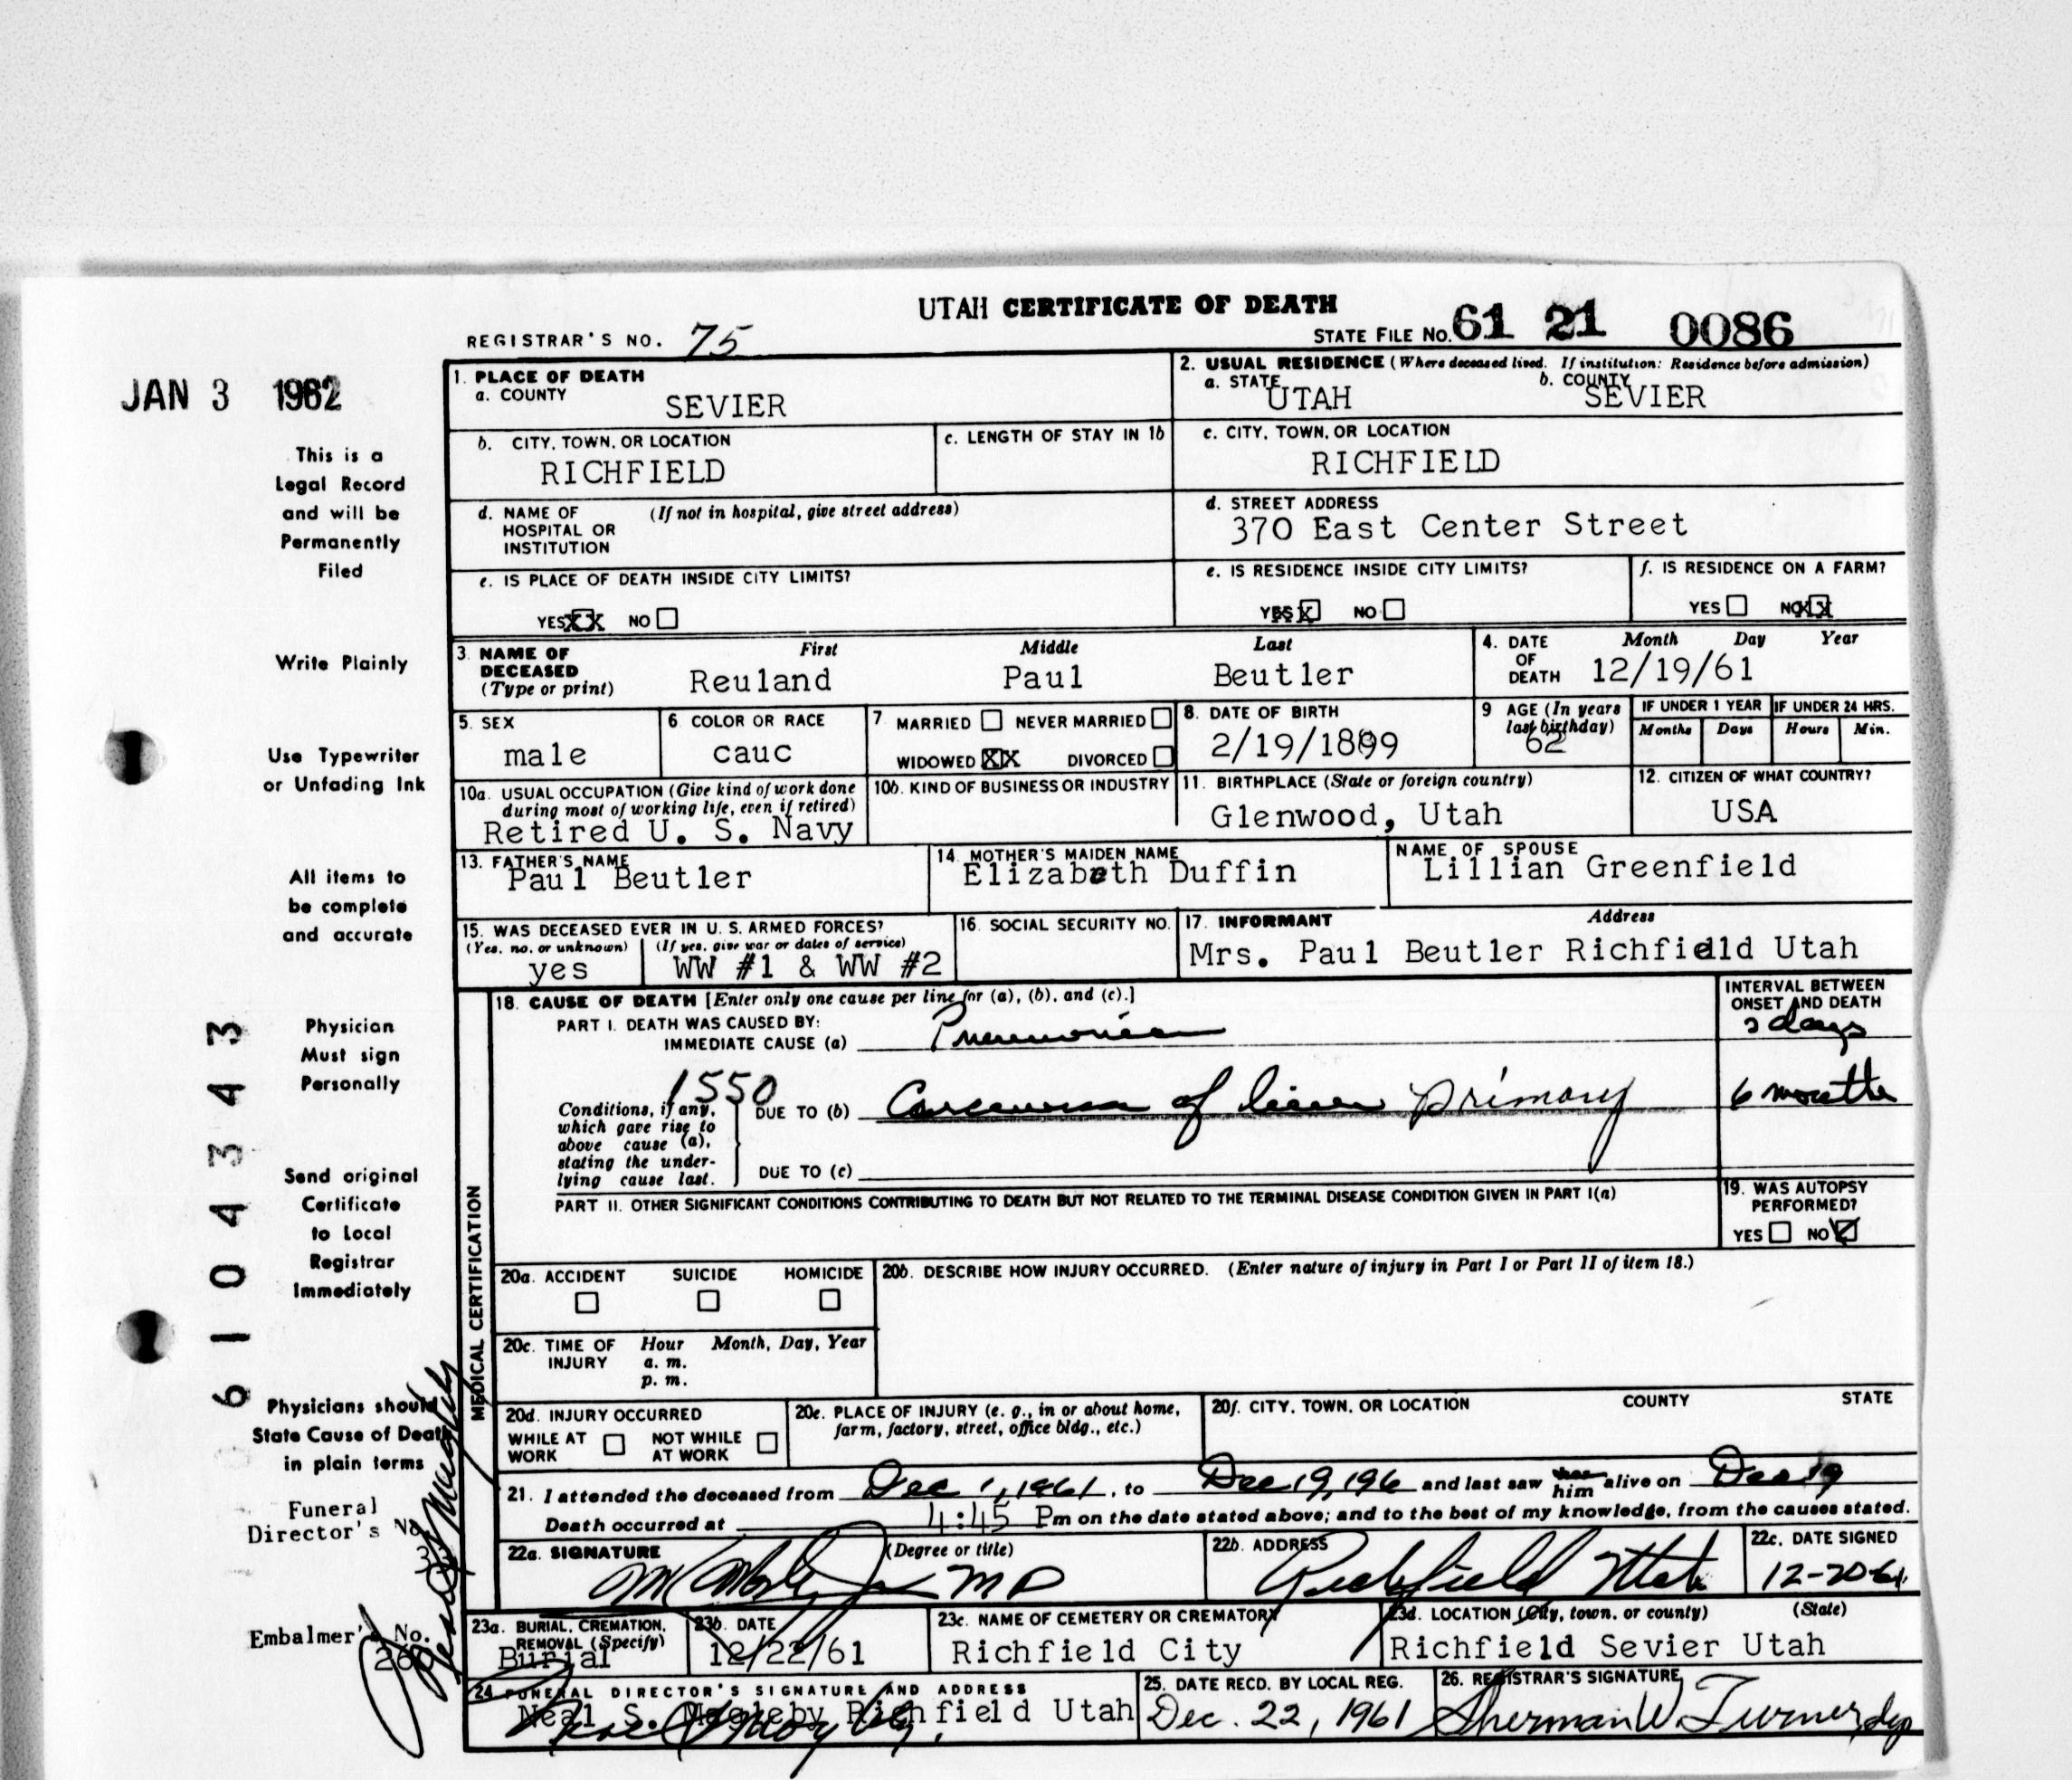 UTAH CERTIFICATE OF DEATH
REGISTRAR'S NO. 75
STATE FILE NO. 61 21 0086
JAN 3 1962
This is a
Legal Record
and will be
Permanently
Filed
Write Plainly
Use Typewriter
or Unfading Ink
All items to
be complete
and accurate
Physician
Must sign
Personally
Send original
Certificate
to Local
Registrar
Immediately
Physicians should
State Cause of Death
in plain terms
Funeral
Director's No.
Embalmer's No.
6104343
1. PLACE OF DEATH
a. COUNTY SEVIER
2. USUAL RESIDENCE (Where deceased lived. If institution: Residence before admission)
a. STATE UTAH b. COUNTY SEVIER
b. CITY, TOWN, OR LOCATION RICHFIELD
c. LENGTH OF STAY IN 1b
c. CITY, TOWN, OR LOCATION RICHFIELD
d. NAME OF HOSPITAL OR INSTITUTION (If not in hospital, give street address)
d. STREET ADDRESS 370 East Center Street
e. IS PLACE OF DEATH INSIDE CITY LIMITS?
YES XX NO
e. IS RESIDENCE INSIDE CITY LIMITS?
YES X NO
f. IS RESIDENCE ON A FARM?
YES NO XX
3. NAME OF DECEASED (Type or print)
First Middle Last
Reuland Paul Beutler
4. DATE OF DEATH Month Day Year
12/19/61
5. SEX male
6. COLOR OR RACE cauc
7. MARRIED NEVER MARRIED
WIDOWED XX DIVORCED
8. DATE OF BIRTH 2/19/1899
9 AGE (In years last birthday) 62
IF UNDER 1 YEAR Months Days
IF UNDER 24 HRS. Hours Min.
10a. USUAL OCCUPATION (Give kind of work done during most of working life, even if retired)
Retired U. S. Navy
10b. KIND OF BUSINESS OR INDUSTRY
11. BIRTHPLACE (State or foreign country)
Glenwood, Utah
12. CITIZEN OF WHAT COUNTRY?
USA
13. FATHER'S NAME
Paul Beutler
14. MOTHER'S MAIDEN NAME
Elizabeth Duffin
NAME OF SPOUSE
Lillian Greenfield
15. WAS DECEASED EVER IN U. S. ARMED FORCES?
(Yes, no, or unknown) (If yes, give war or dates of service)
yes WW #1 & WW #2
16. SOCIAL SECURITY NO.
17. INFORMANT Address
Mrs. Paul Beutler Richfield Utah
MEDICAL CERTIFICATION
18. CAUSE OF DEATH [Enter only one cause per line for (a), (b), and (c).]
INTERVAL BETWEEN ONSET AND DEATH
PART I. DEATH WAS CAUSED BY:
IMMEDIATE CAUSE (a) Pneumonia days
1550
Conditions, if any, which gave rise to above cause (a), stating the underlying cause last.
DUE TO (b) Carcinoma of liver primary 6 months
DUE TO (c)
PART II. OTHER SIGNIFICANT CONDITIONS CONTRIBUTING TO DEATH BUT NOT RELATED TO THE TERMINAL DISEASE CONDITION GIVEN IN PART I(a)
19. WAS AUTOPSY PERFORMED?
YES NO
20a. ACCIDENT SUICIDE HOMICIDE
20b. DESCRIBE HOW INJURY OCCURRED. (Enter nature of injury in Part I or Part II of item 18.)
20c. TIME OF INJURY Hour Month, Day, Year
a. m.
p. m.
20d. INJURY OCCURRED
WHILE AT WORK NOT WHILE AT WORK
20e. PLACE OF INJURY (e. g., in or about home, farm, factory, street, office bldg., etc.)
20f. CITY, TOWN, OR LOCATION COUNTY STATE
21. I attended the deceased from Dec 1, 1961, to Dec 19, 196 and last saw her him alive on Dec 19
Death occurred at 4:45 Pm on the date stated above; and to the best of my knowledge, from the causes stated.
22a. SIGNATURE (Degree or title)
MD
22b. ADDRESS
Richfield Utah
22c. DATE SIGNED
12-20-61
23a. BURIAL, CREMATION, REMOVAL (Specify)
Burial
23b. DATE
12/22/61
23c. NAME OF CEMETERY OR CREMATORY
Richfield City
23d. LOCATION (City, town, or county) (State)
Richfield Sevier Utah
24 FUNERAL DIRECTOR'S SIGNATURE AND ADDRESS
Neal S. Magleby Richfield Utah
25. DATE RECD. BY LOCAL REG.
Dec. 22, 1961
26. REGISTRAR'S SIGNATURE
Sherman W. Turner, dep